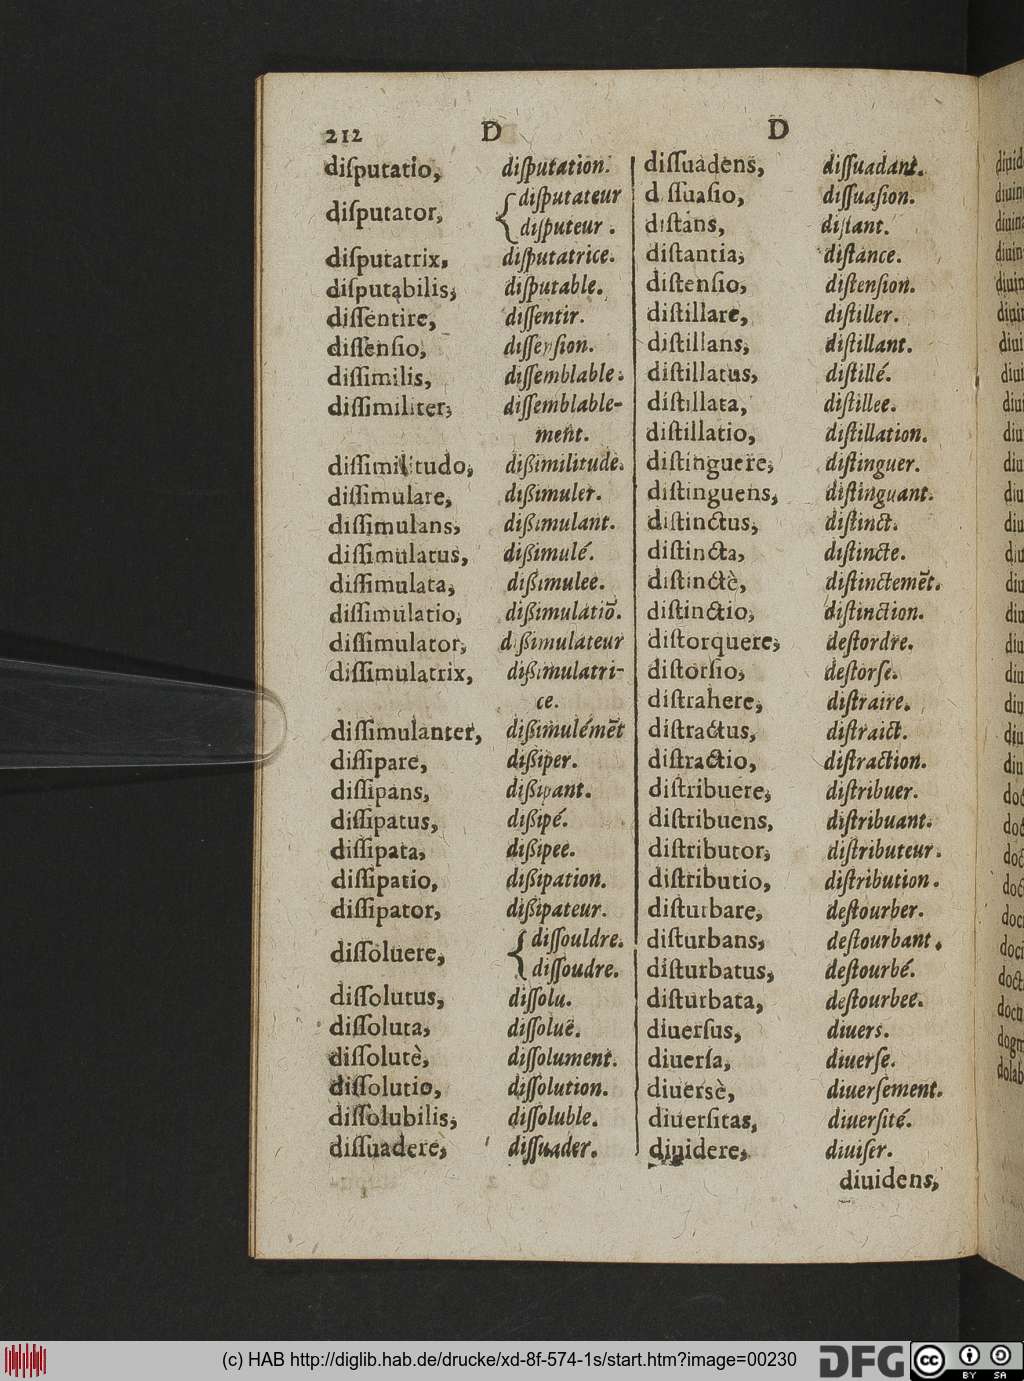 212 D D
diſputatio, diſputation.
diſputator, { diſputateur
diſputeur.
diſputatrix, diſputatrice.
diſputabilis, diſputable.
diſſentire, diſſentir.
diſſenſio, diſſenſion.
diſſimilis, diſſemblable.
diſſimiliter, diſſemblable-
ment.
diſſimilitudo, dißimilitude.
diſſimulare, dißimuler.
diſſimulans, dißimulant.
diſſimulatus, dißimulé.
diſſimulata, dißimulee.
diſſimulatio, dißimulatiō.
diſſimulator, dißimulateur
diſſimulatrix, dißimulatri-
ce.
diſſimulanter, dißimulémēt
diſſipare, dißiper.
diſſipans, dißipant.
diſſipatus, dißipé.
diſſipata, dißipee.
diſſipatio, dißipation.
diſſipator, dißipateur.
diſſoluere, { diſſouldre.
diſſoudre.
diſſolutus, diſſolu.
diſſoluta, diſſoluë.
diſſolutè, diſſolument.
diſſolutio, diſſolution.
diſſolubilis, diſſoluble.
diſſuadere, diſſuader.
diſſuadens, diſſuadant.
d ſſuaſio, diſſuaſion.
diſtans, diſtant.
diſtantia, diſtance.
diſtenſio, diſtenſion.
diſtillare, diſtiller.
diſtillans, diſtillant.
diſtillatus, diſtillé.
diſtillata, diſtillee.
diſtillatio, diſtillation.
diſtinguere, diſtinguer.
diſtinguens, diſtinguant.
diſtinctus, diſtinct.
diſtincta, diſtincte.
diſtinctè, diſtinctemēt.
diſtinctio, diſtinction.
diſtorquere, deſtordre.
diſtorſio, deſtorſe.
diſtrahere, diſtraire.
diſtractus, diſtraict.
diſtractio, diſtraction.
diſtribuere, diſtribuer.
diſtribuens, diſtribuant.
diſtributor, diſtributeur.
diſtributio, diſtribution.
diſturbare, deſtourber.
diſturbans, deſtourbant.
diſturbatus, deſtourbé.
diſturbata, deſtourbee.
diuerſus, diuers.
diuerſa, diuerſe.
diuersè, diuerſement.
diuerſitas, diuerſité.
diuidere, diuiſer.
diuidens,
(c) HAB http://diglib.hab.de/drucke/xd-8f-574-1s/start.htm?image=00230
DFG
cc BY SA